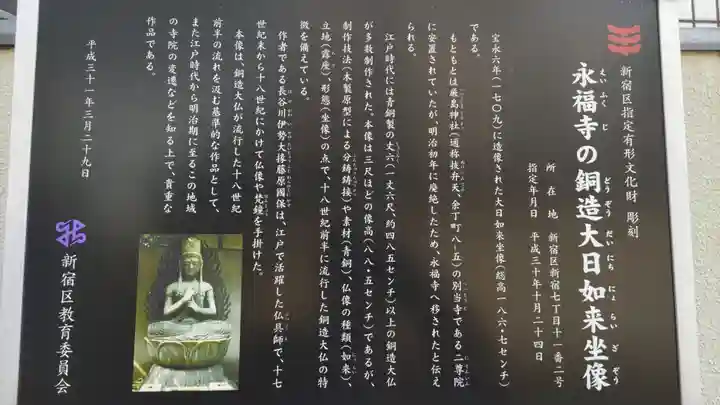 新宿区指定有形文化財 彫刻
永福寺の銅造大日如来坐像
えいふくじ どうぞうだいにちにょらいざぞう
所在地 新宿区新宿七丁目十一番二号
指定年月日 平成三十年十月二十四日
宝永六年(一七〇九)に造像された大日如来坐像(総高一八六・七センチ)
である。
もともとは厳島神社(通称抜弁天、余丁町八-五)の別当寺である二尊院
に安置されていたが、明治初年に廃絶したため、永福寺へ移されたと伝え
られる。
江戸時代には青銅製の丈六(一丈六尺、約四八五センチ)以上の銅造大仏
が多数制作された。本像は三尺ほどの像高(八八・五センチ)であるが、
制作技法(木製原型による分鋳鋳接)や素材(青銅)、仏像の種類(如来)、
立地(露座)、形態(坐像)の点で、十八世紀前半に流行した銅造大仏の特
徴を備えている。
作者である長谷川伊勢大掾藤原國保は、江戸で活躍した仏具師で、十七
世紀末から十八世紀にかけて仏像や梵鐘を手掛けた。
本像は、銅造大仏が流行した十八世紀
前半の流れを汲む基準的な作品として、
また江戸時代から明治期に至るこの地域
の寺院の変遷などを知る上で、貴重な
作品である。
平成三十一年三月二十九日
新宿区教育委員会